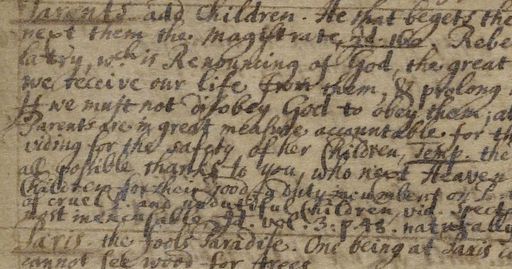 Parents. and Children. He that begets the
next them the Magistrate, id. 160. Rebe
latry, wch is Renouncing of God the great
we receive our life from them, & prolong
yt we must not disobey God to obey them, at
Parents are in great measure accountable for th
viding for the safety of her Children, Temp. the
all possible thanks to you, who next Heaven
Children for their good
of cruel and undutiful Children, vid. Spect
vol. 3. p. 48. naturally
Paris. the fools Paradise. One being at Paris
cannot see wood for trees